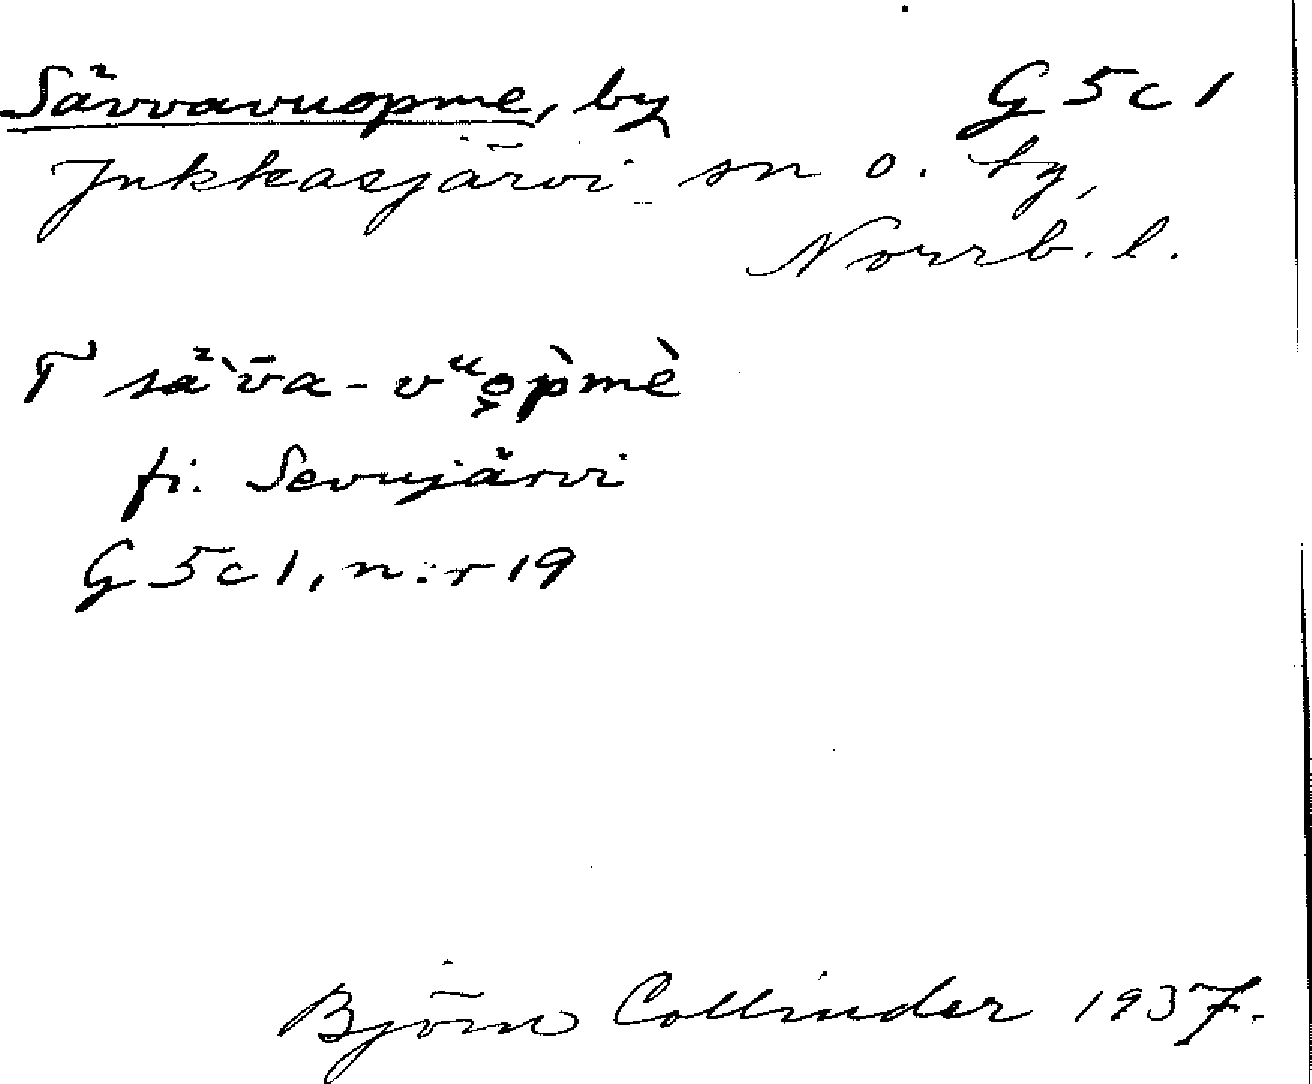 Sävvavuopme, by G 5 c 1
Jukkasjärvi sn o. tg,
Norrb. l.
T sä̀v̄a - vᵘo̭p̀mè
fi. Sevujärvi
G 5 c 1, n:r 19
Björn Collinder 1937.